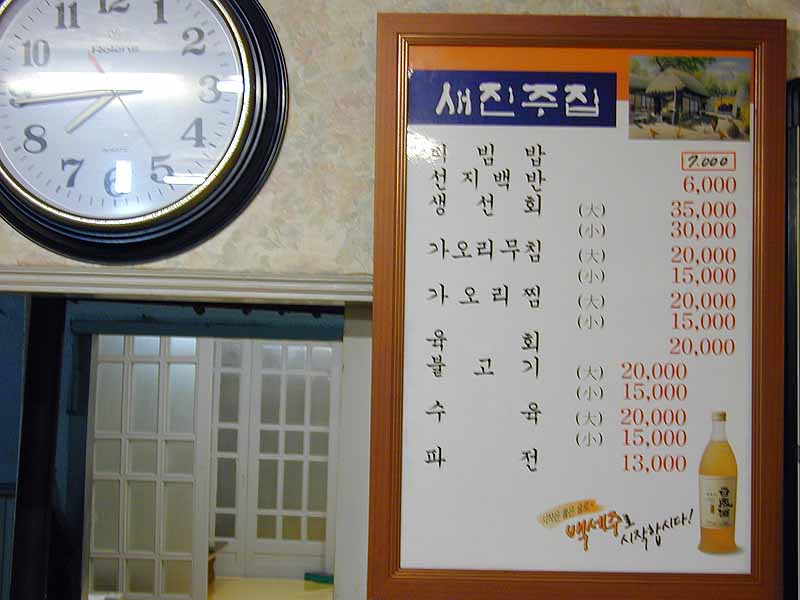 11 12 1
10 2
Rolens
3
8 4
7 6 5
QUARTZ
새진주집
비 빔 밥 7.000
선지백반 6,000
생 선 회 (大) 35,000
(小) 30,000
가오리무침 (大) 20,000
(小) 15,000
가오리찜 (大) 20,000
(小) 15,000
육 회 20,000
불 고 기 (大) 20,000
(小) 15,000
수 육 (大) 20,000
(小) 15,000
파 전 13,000
백세주로
시작합시다!
百歲酒